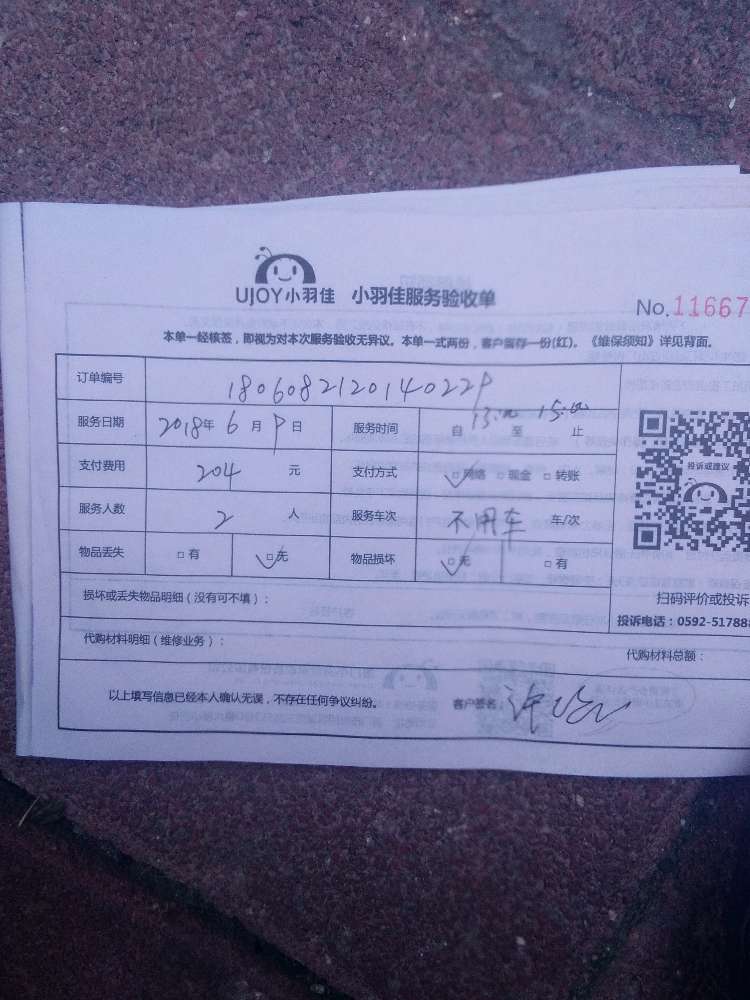 UJOY小羽佳 小羽佳服务验收单
No.11667
本单一经核签，即视为对本次服务验收无异议。本单一式两份，客户留存一份(红)。《维保须知》详见背面。
订单编号 1806082120140229
服务日期 2018年 6月 9日 服务时间 自 13:00 至 15:00 止
支付费用 204 元 支付方式 ☑网络 □现金 □转账
服务人数 2 人 服务车次 不用车 车/次
物品丢失 □有 ☑无 物品损坏 ☑无 □有
投诉或建议
扫码评价或投诉
损坏或丢失物品明细（没有可不填）：
投诉电话：0592-51788
代购材料明细（维修业务）：
代购材料总额：
以上填写信息已经本人确认无误，不存在任何争议纠纷。 客户签名：许